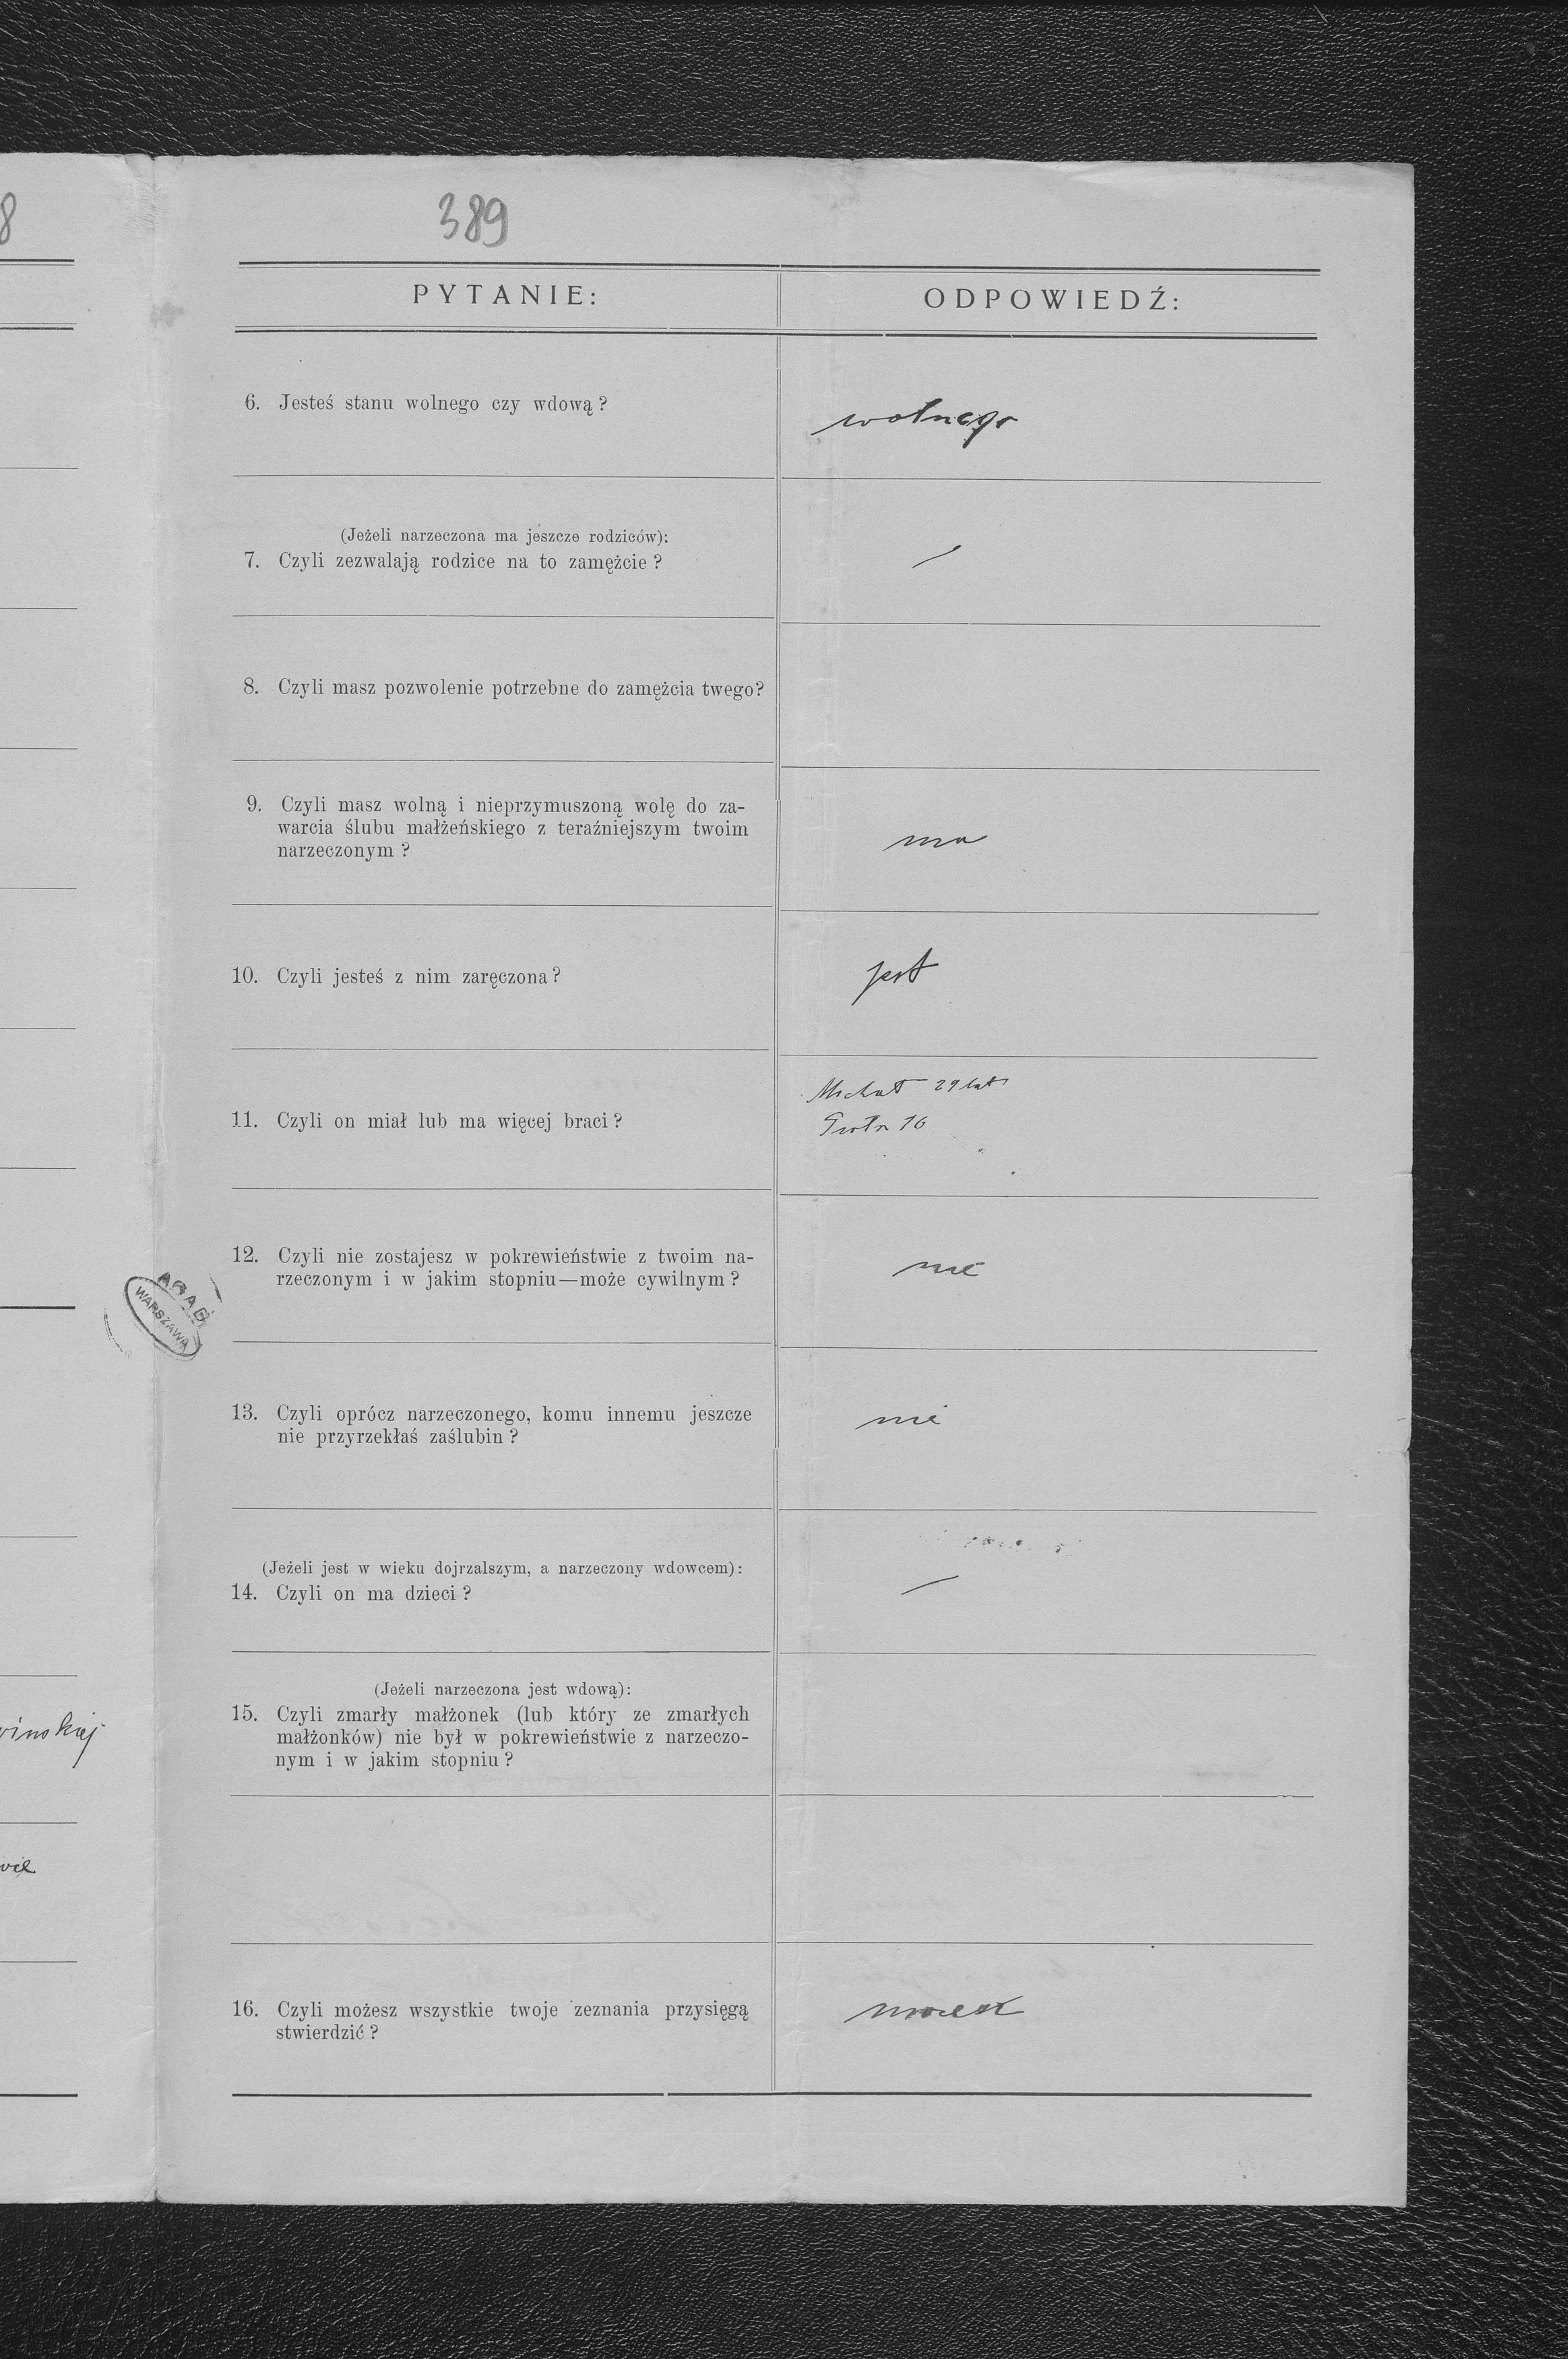 8
389
PYTANIE:
ODPOWIEDŹ:
6. Jesteś stanu wolnego czy wdową?
wolnego
(Jeżeli narzeczona ma jeszcze rodziców):
7. Czyli zezwalają rodzice na to zamężcie?
8. Czyli masz pozwolenie potrzebne do zamężcia twego?
9. Czyli masz wolną i nieprzymuszoną wolę do za-
warcia ślubu małżeńskiego z teraźniejszym twoim
narzeczonym?
ma
10. Czyli jesteś z nim zaręczona?
jest
11. Czyli on miał lub ma więcej braci?
Michał 29 lat
Piotr 16
12. Czyli nie zostajesz w pokrewieństwie z twoim na-
rzeczonym i w jakim stopniu—może cywilnym?
nie
ABAG
WARSZAWA
13. Czyli oprócz narzeczonego, komu innemu jeszcze
nie przyrzekłaś zaślubin?
nie
(Jeżeli jest w wieku dojrzalszym, a narzeczony wdowcem):
14. Czyli on ma dzieci?
(Jeżeli narzeczona jest wdową):
15. Czyli zmarły małżonek (lub który ze zmarłych
małżonków) nie był w pokrewieństwie z narzeczo-
nym i w jakim stopniu?
16. Czyli możesz wszystkie twoje zeznania przysięgą
stwierdzić?